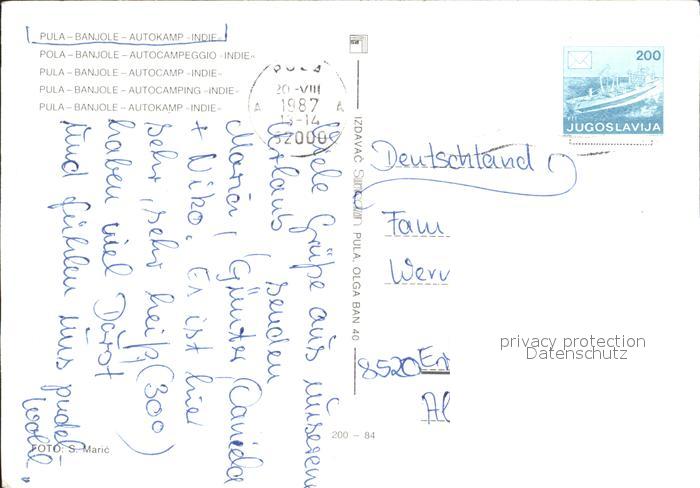 PULA – BANJOLE – AUTOKAMP »INDIE«
POLA – BANJOLE – AUTOCAMPEGGIO »INDIE«
PULA – BANJOLE – AUTOCAMP »INDIE«
PULA – BANJOLE – AUTOCAMPING »INDIE«
PULA – BANJOLE – AUTOKAMP »INDIE«
PULA
20-VIII
A 1987 A
13-14
52000
Viele Grüße aus unserem
Urlaub senden
Maria, Günter, Daniela
+ Niko. Es ist hier
sehr, sehr heiß (30°)
haben viel Durst
und fühlen uns pudel-
wohl.
FOTO: S. Marić
200 – 84
IZDAVAČ PULA, OLGA BAN 40
200
PTT
JUGOSLAVIJA
Deutschland
Fam
Wern
8520 Erl
Al
privacy protection
Datenschutz